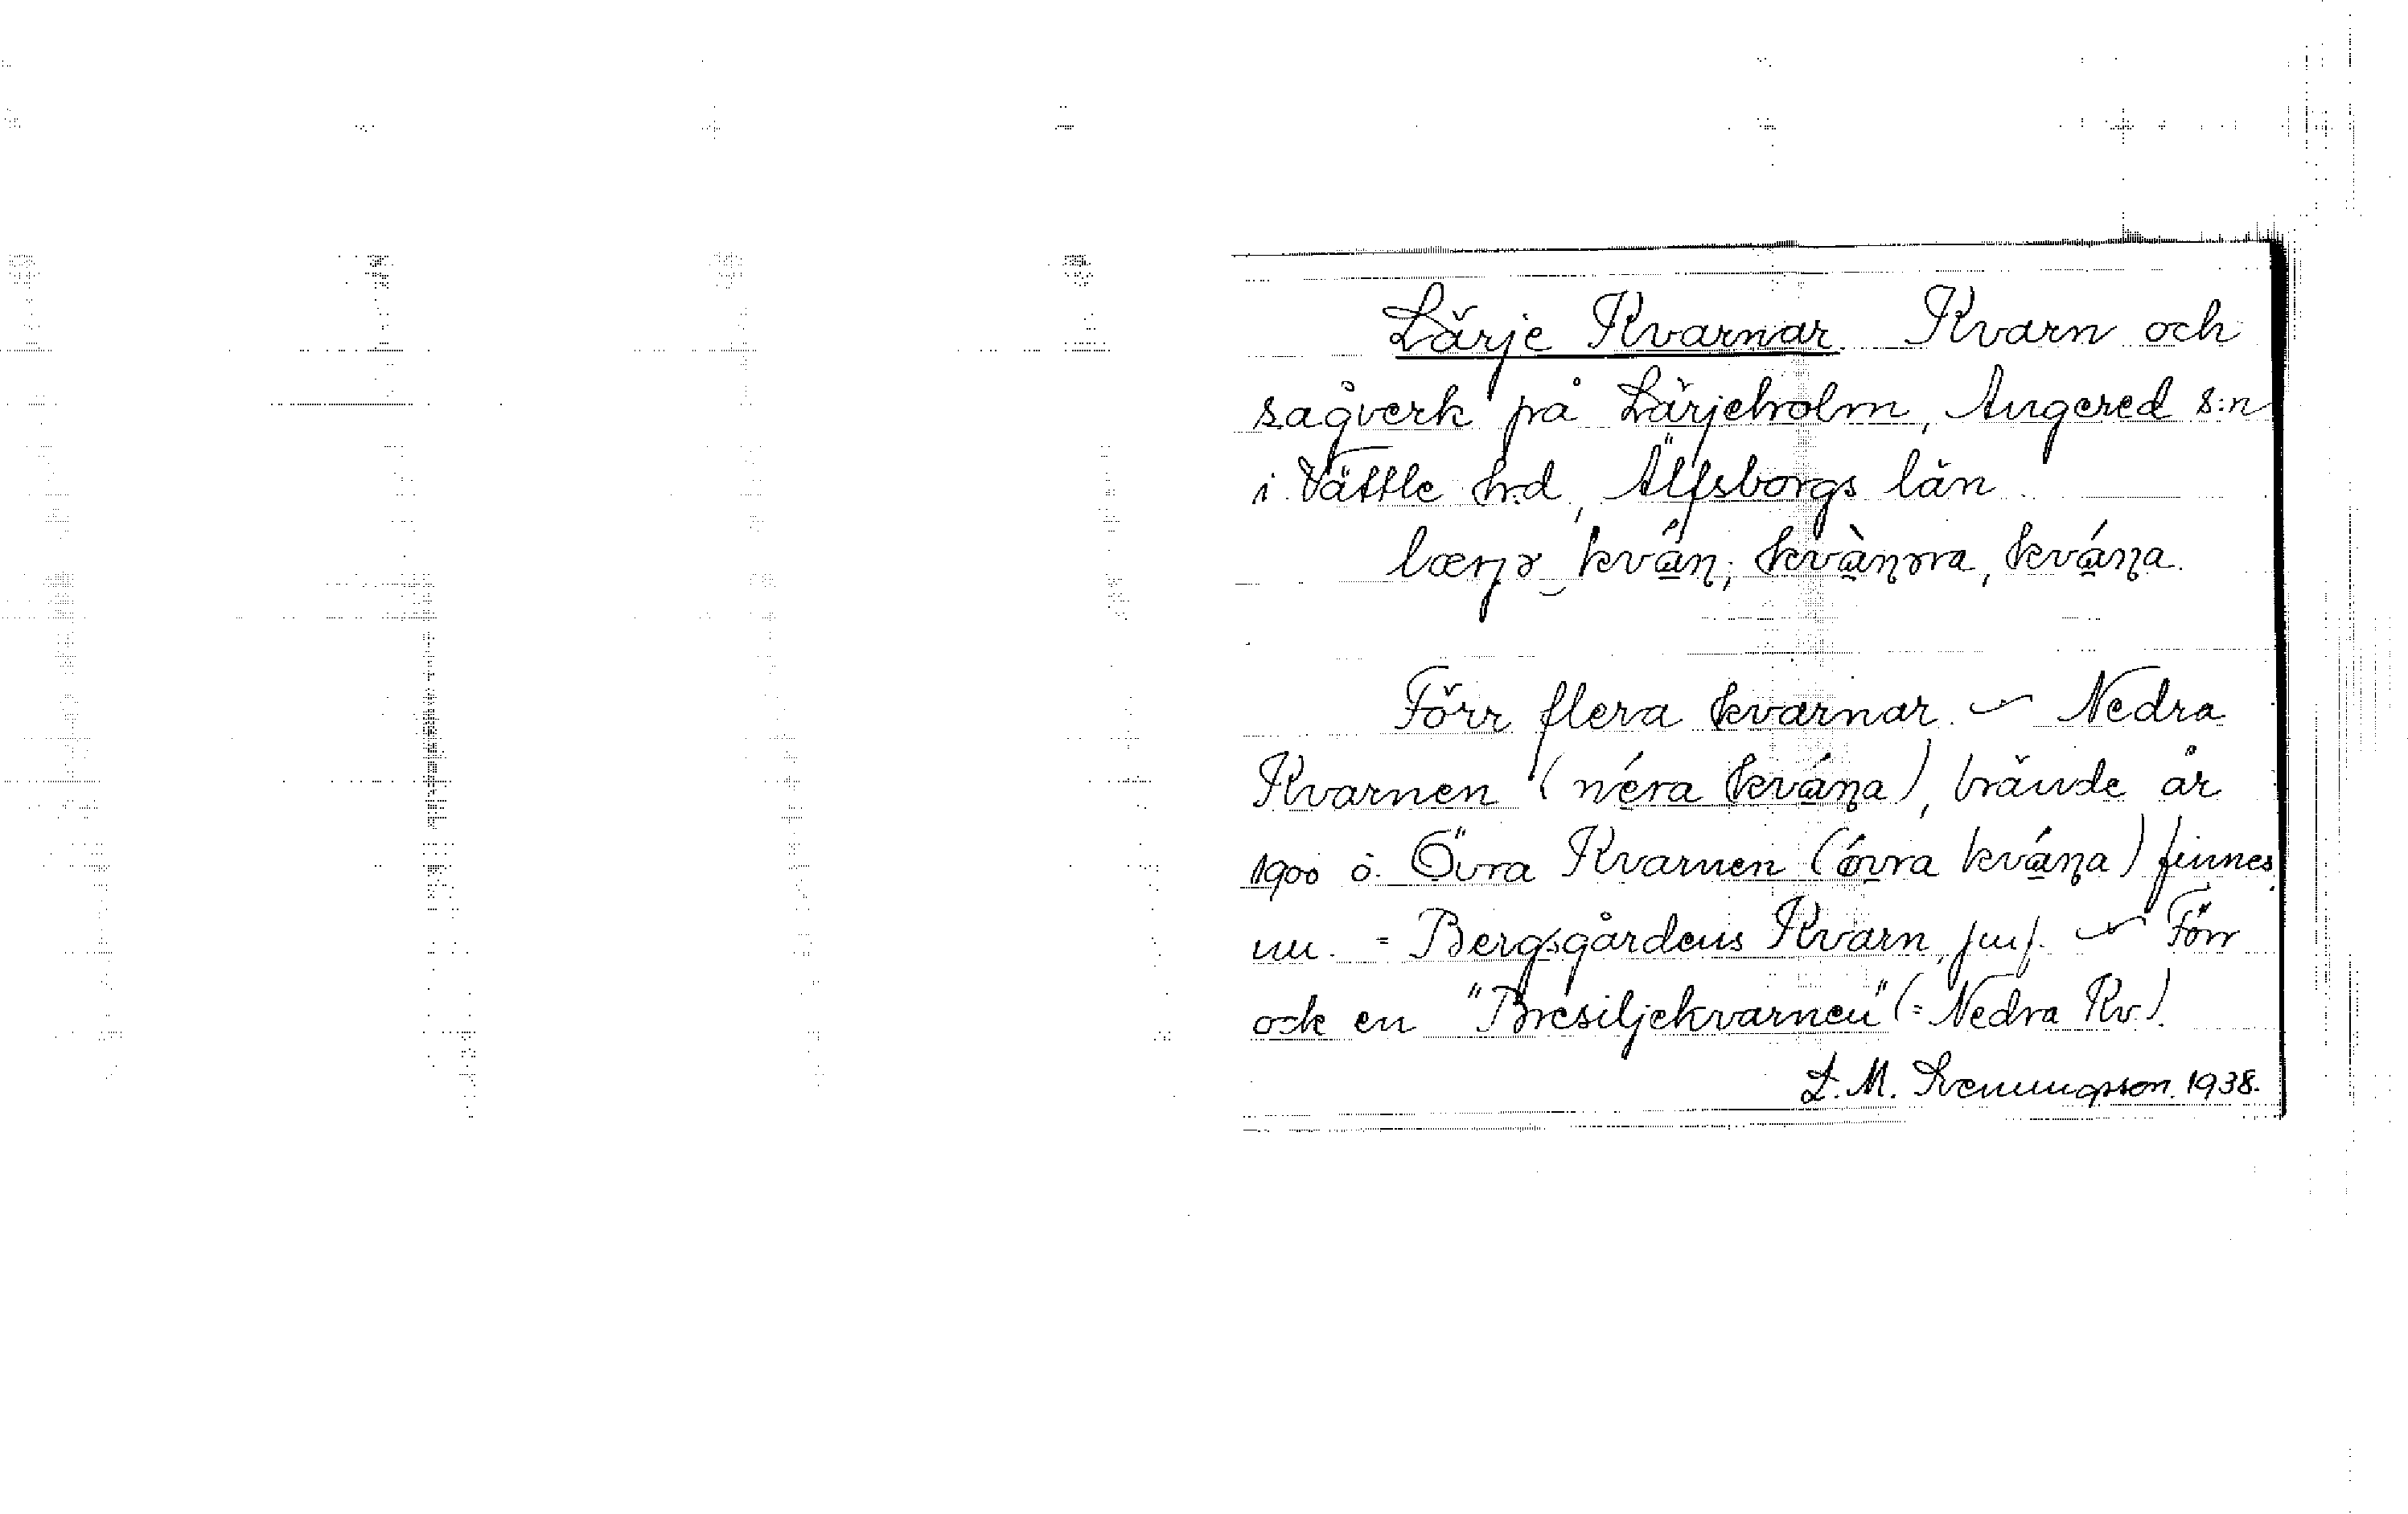 Lärje Kvarnar. Kvarn och
sågverk på Lärjeholm, Angered s:n
i Vättle hd, Älfsborgs län
lærjə kván̨; kvàn̨ɔra, kván̨a.
Förr flera kvarnar. – Nedra
Kvarnen (néra kván̨a), brände år
1900 ö. Övra Kvarnen (óvra kván̨a) finnes
nu. = Bergsgårdens Kvarn, – Förr
ock en "Bresiljekvarnen" (= Nedra Kv.).
L. M. Svenungsson. 1938.